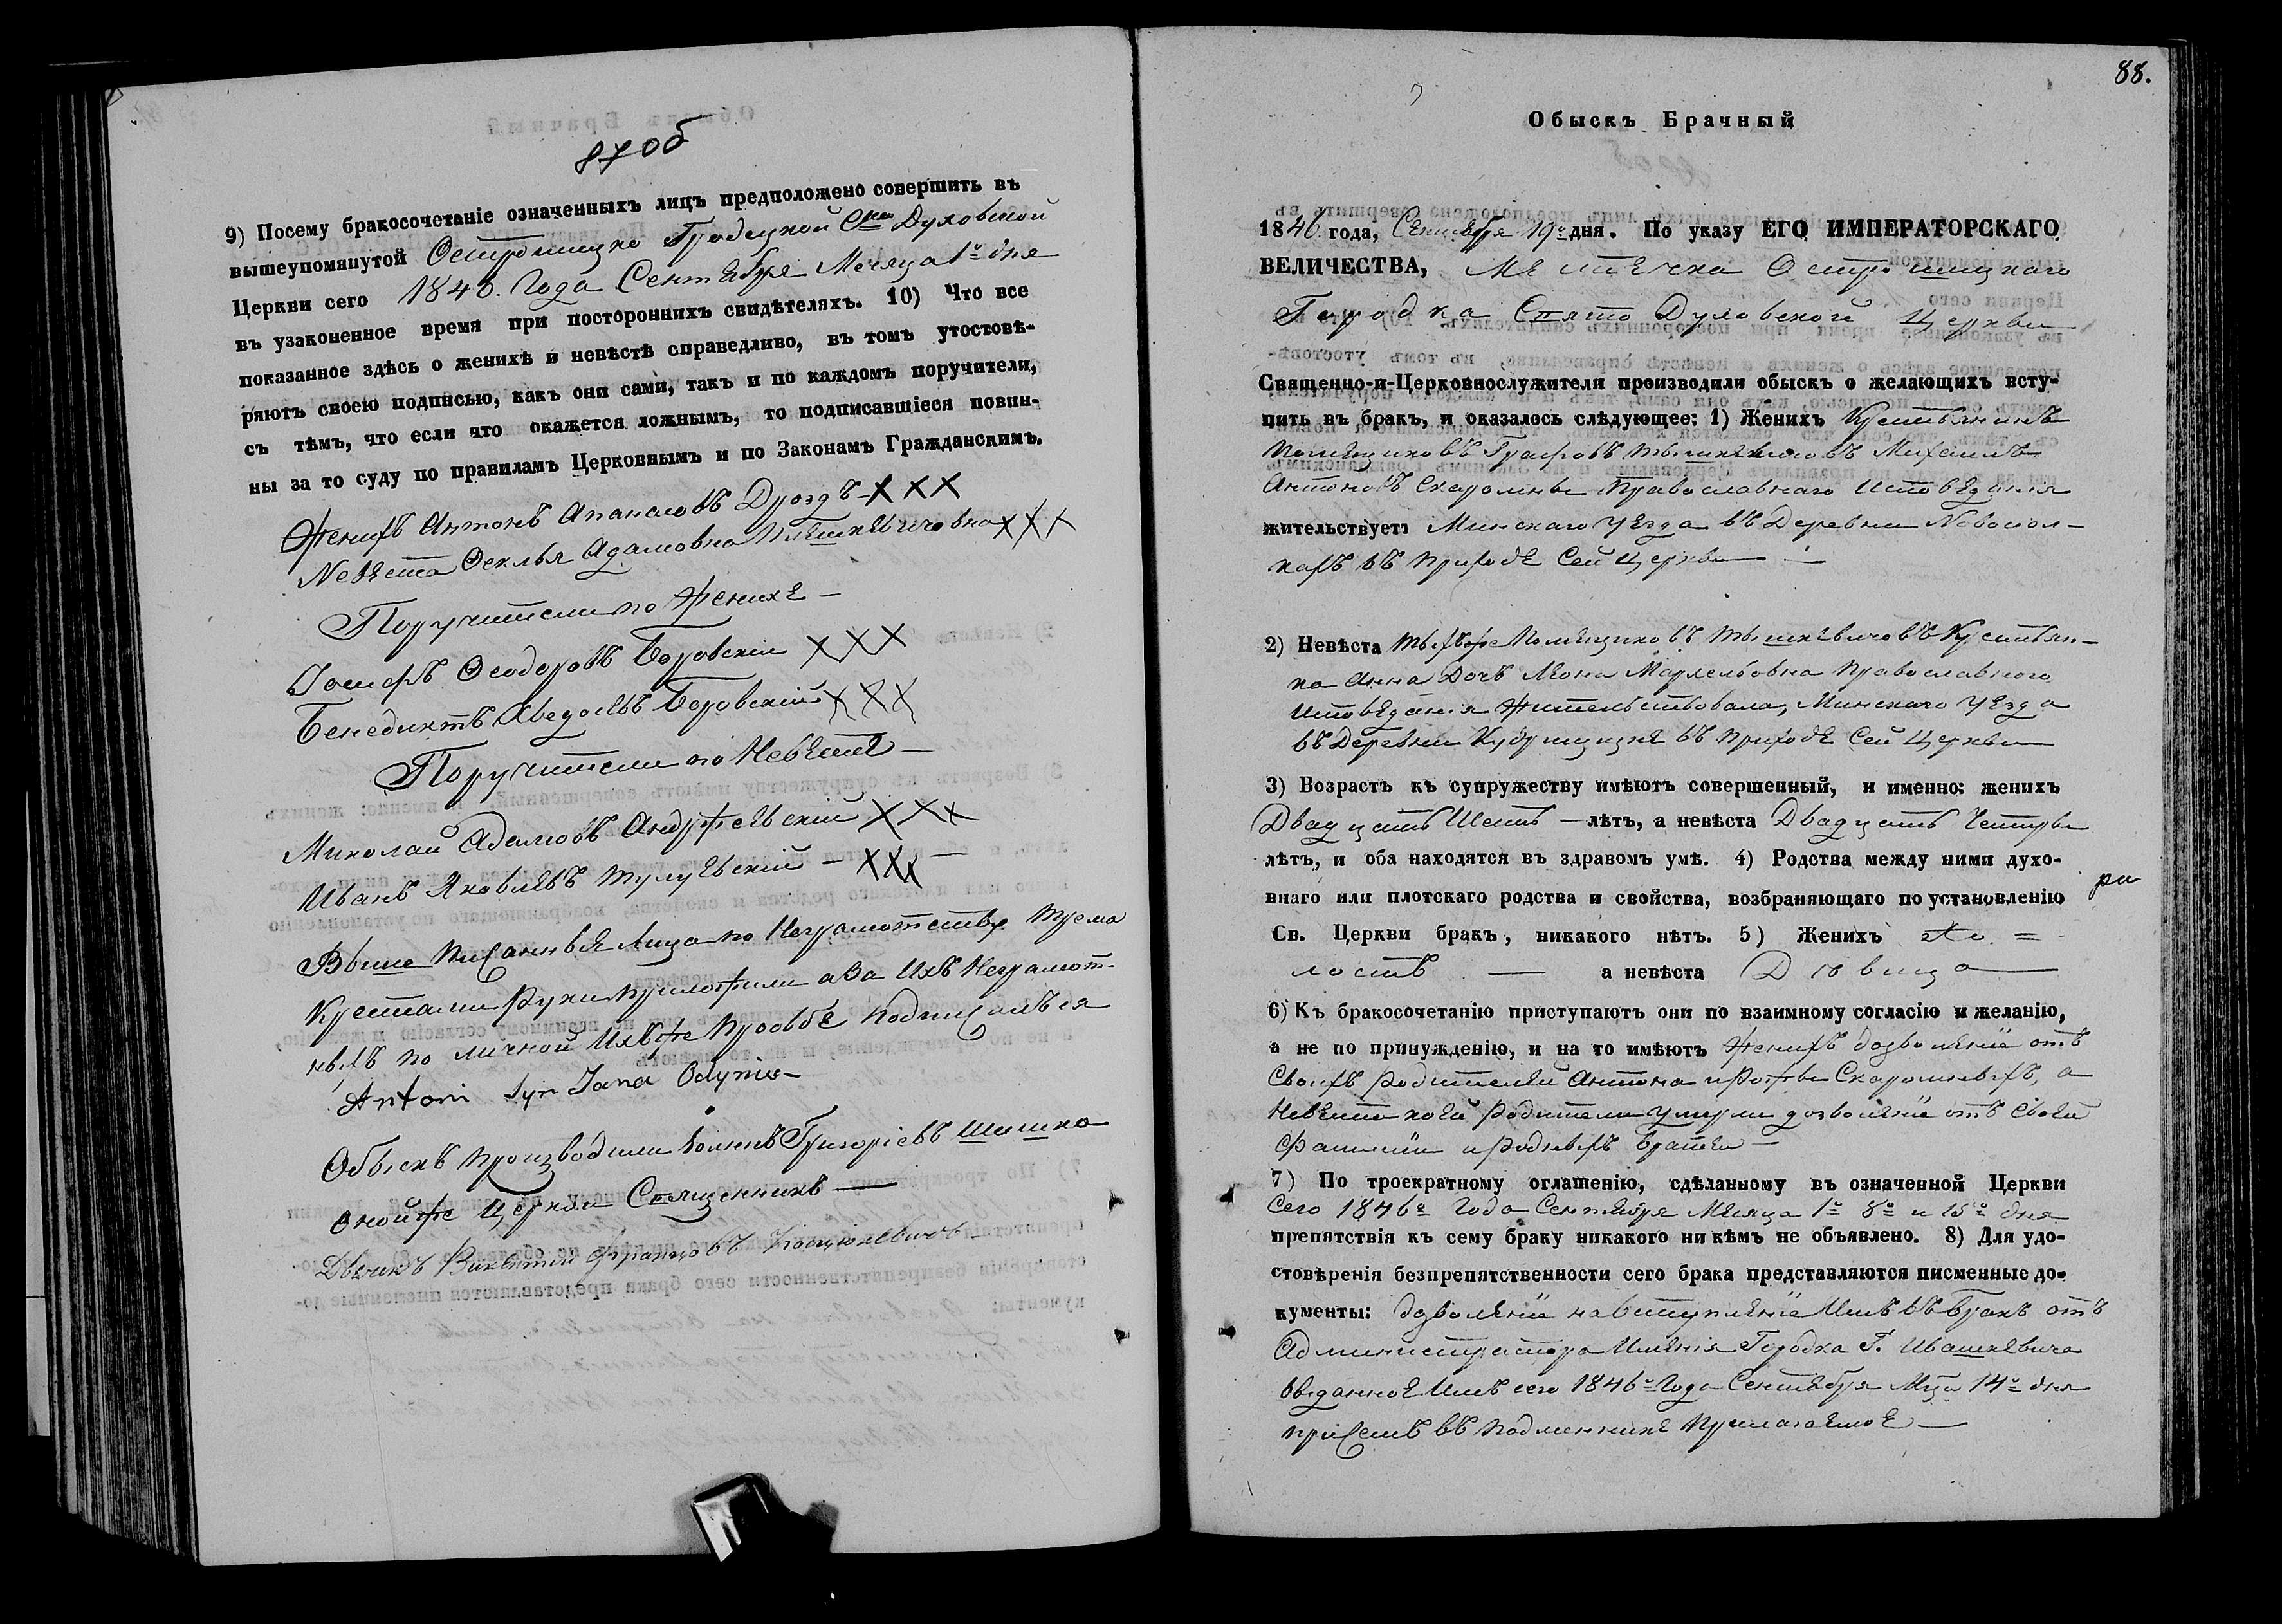 87 об
9) Посему бракосочетаніе означенныхъ лицъ предположено совершить въ
вышеупомянутой Острошицко Гродецкой Свя Духовской
Церкви сего 1846. Года Сентября Месяца 1го дня
въ узаконенное время при постороннихъ свидѣтеляхъ. 10) Что все
показанное здѣсь о женихѣ и невѣстѣ справедливо, въ томъ утостовѣ-
ряютъ своею подписью, какъ они сами, такъ и по каждомъ поручители,
съ тѣмъ, что если что окажется ложнымъ, то подписавшіеся повин-
ны за то суду по правиламъ Церковнымъ и по Законамъ Гражданскимъ.
Женихъ Антонъ Апанасовъ Дроздъ - X X X
Невѣста Феклья Адамовна Плешкевичовна X X X
Поручители по Женихѣ -
Іосифъ Феодоровъ Боровскій X X X
Бенедиктъ Хведосовъ Боровскій X X X
Поручители по Невѣстѣ -
Миколай Адамовъ Андржеевскій X X X
Иванъ Яковлевъ Тулуевскій - X X X -
Выше писанные Лица по Неграмотству трема
Крестами руки приложили а За ихъ Неграмот-
ныхъ по личной ихъ же Прозьбѣ подписался
Antoni syn Jana Odyniec
Обыскъ производили Іоаннъ Григоріевъ Шешко
оной же Церкви Священникъ
Дьячкъ Викентій Францовъ Коцюкевичъ
88.
Обыскъ Брачный
1846 года, Сентября 19го дня. По указу ЕГО ИМПЕРАТОРСКАГО
ВЕЛИЧЕСТВА, Мѣстечка Острошицкаго
Городка Свято Духовской Церкви
Священно-и-Церковнослужители производили обыскъ о желающихъ всту-
пить въ бракъ, и оказалось слѣдующее: 1) Женихъ Крестьянинъ
Помещиковъ Графовъ Тышкевичовъ Михаилъ
Антоновъ Скаромны Православнаго Исповеданія
жительствуетъ Минскаго Уезда въ Деревни Новосел-
кахъ въ приходѣ Сей Церкви
2) Невѣста тыхъже Помещиковъ Тышкевичовъ Крестьян-
ка Анна Дочъ Леона Мархелювна Православного
Исповеданія жительствовала, Минскаго Уезда
въ Деревни Кудрищизне въ приходѣ Сей Церкви
3) Возрастъ къ супружеству имѣютъ совершенный, и именно: женихъ
Двадцать Шесть - лѣтъ, а невѣста Двадцать Четыры
лѣтъ, и оба находятся въ здравомъ умѣ. 4) Родства между ними духо-
внаго или плотскаго родства и свойства, возбраняющаго по установленію
Св. Церкви бракъ, никакого нѣтъ. 5) Женихъ Хо =
лостъ - а невѣста Дѣвица
6) Къ бракосочетанію приступаютъ они по взаимному согласію и желанію,
а не по принужденію, и на то имѣютъ Женихъ дозволеніе отъ
Своихъ Родителей Антона и Розы Скаромныхъ, а
Невѣста коей Родители умерли дозволеніе отъ Своей
Фамилии и Родныхъ Братей -
7) По троекратному оглашенію, сдѣланному въ означенной Церкви
Сего 1846го Года Сентября Месяца 1го 8го и 15го дня
препятствія къ сему браку никакого ни кѣмъ не объявлено. 8) Для удо-
стовѣренія безпрепятственности сего брака представляются писменные до-
кументы: дозволеніе на вступленіе Имъ въ Бракъ отъ
Администратора Именія Городка Г. Ивашкевича
выданное Имъ сего 1846го Года Сентября Мца 14го дня
при семъ въ подлиннике прилагаемое -